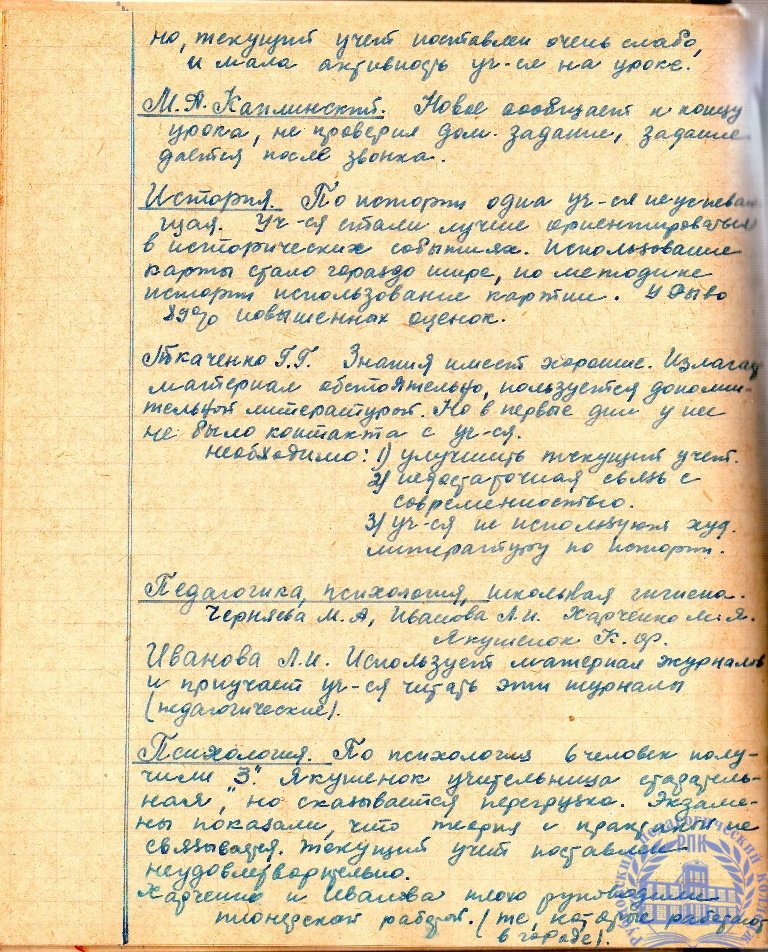 но, текущий учет поставлен очень слабо,
и мала активность уч-ся на уроке.
М.А. Каплинский. Новое сообщает к концу
урока, не проверил дом. задание, задание
дается после звонка.
История. По истории одна уч-ся неуспеваю-
щая. Уч-ся стали лучше ориентироваться
в исторических событиях. Использование
карты стало гораздо шире, по методике
истории использование картин. У Рыло
89% повышенных оценок.
Ткаченко Г.Г. Знания имеет хорошие. Излагает
материал обстоятельно, пользуется дополни-
тельной литературой. Но в первые дни у нее
не было контакта с уч-ся.
необходимо: 1) улучшить текущий учет.
2) недостаточная связь с
современностью.
3) уч-ся не используют худ.
литературу по истории.
Педагогика, психология, школьная гигиена.
Черняева М.А, Иванова Л.И. Харченко М.Я.
Якушенок К.Ф.
Иванова Л.И. Использует материал журналов
и приучает уч-ся читать эти журналы
(педагогические).
Психология. По психологии 6 человек полу-
чили "3". Якушенок учительница старатель-
ная, но сказывается перегрузка. Экзаме-
ны показали, что теория с практикой не
связывается. Текущий учет поставлен
неудовлетворительно.
Харченко и Иванова плохо руководили
пионерской работой. (те, которые работают
в городе).
РПК